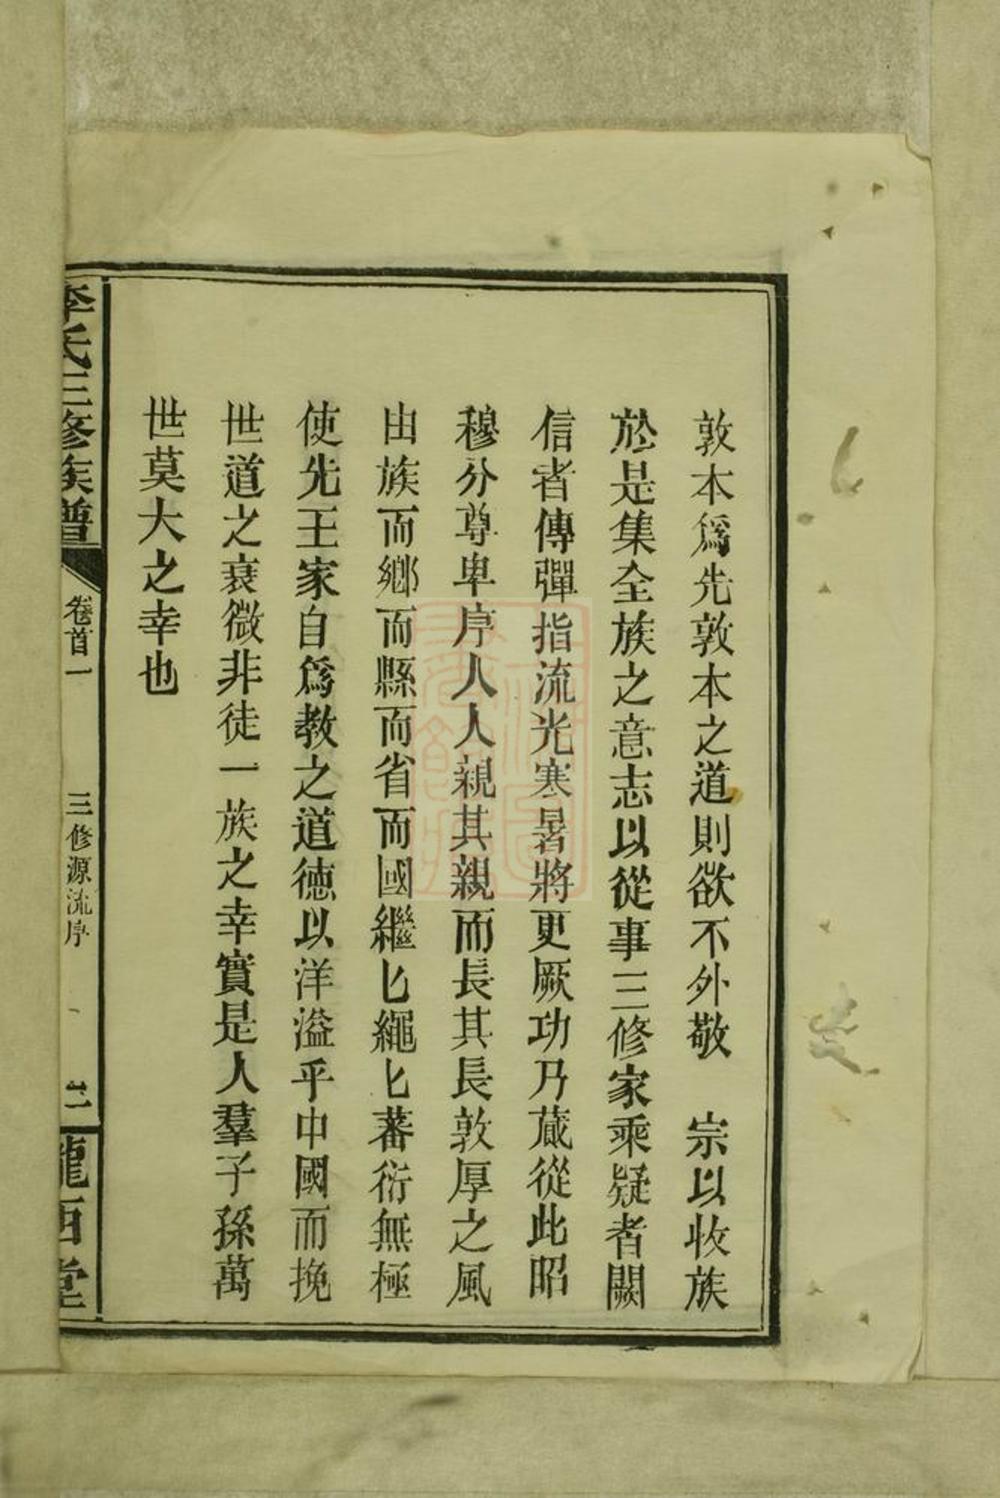 敦本爲先敦本之道則欲不外敬　宗以收族
於是集全族之意志以從事三修家乘疑者闕
信者傳彈指流光寒暑將更厥功乃蕆從此昭
穆分尊卑序人人親其親而長其長敦厚之風
由族而鄉而縣而省而國繼匕繩匕蕃衍無極
使先王家自爲教之道德以洋溢乎中國而挽
世道之衰微非徒一族之幸實是人羣子孫萬
世莫大之幸也
李氏三修族譜
卷首一
三修源流序
三
隴西堂